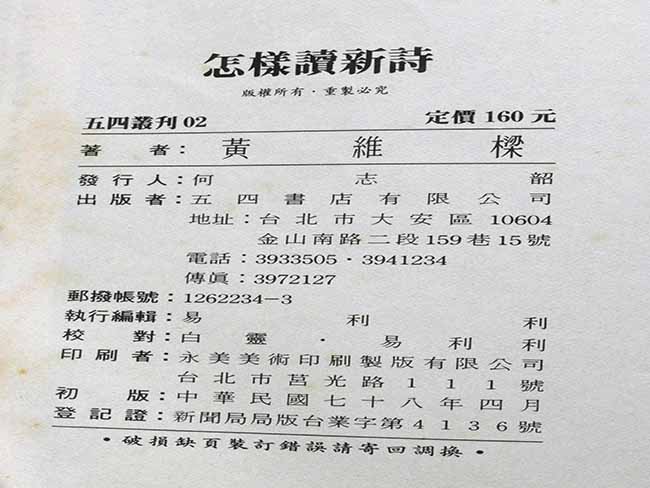 怎樣讀新詩
版權所有·重製必究
五四叢刊02 定價160元
著者：黃維樑
發行人：何志韶
出版者：五四書店有限公司
地址：台北市大安區10604
金山南路二段159巷15號
電話：3933505·3941234
傳眞：3972127
郵撥帳號：1262234-3
執行編輯：易利利
校對：白靈·易利利
印刷者：永美美術印刷製版有限公司
台北市莒光路111號
初版：中華民國七十八年四月
登記證：新聞局局版台業字第4136號
•破損缺頁裝訂錯誤請寄回調換•